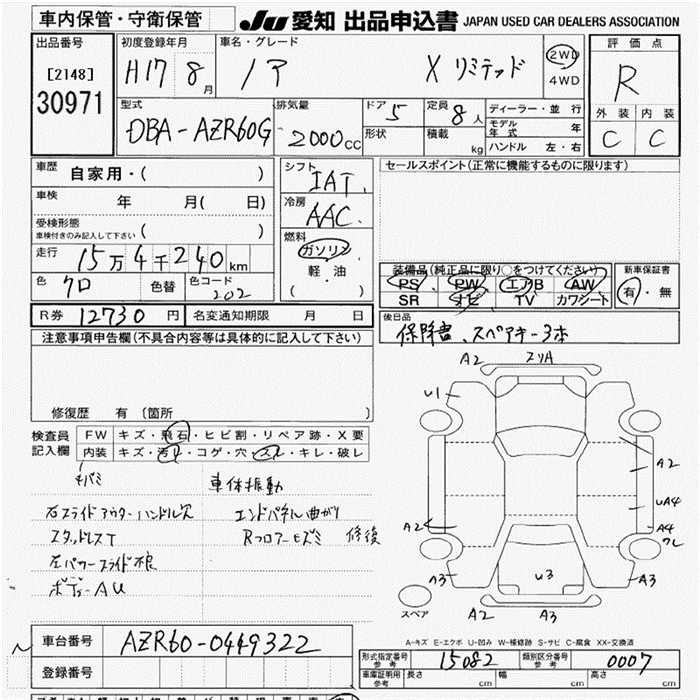 車内保管・守衛保管
JU 愛知 出品申込書 JAPAN USED CAR DEALERS ASSOCIATION
出品番号
[2148]
30971
初度登録年月
H17 8月
車名・グレード
ノア X リミテッド
2WD
4WD
評価点
R
外装 内装
C C
型式
DBA-AZR60G
排気量
2000cc
ドア 5
形状
定員 8人
積載 kg
ディーラー・並行
モデル年式 年
ハンドル 左・右
車歴 自家用・( )
車検 年 月( 日)
受検形態
車検付きのみ記入して下さい ( )
走行 15万4千240km
色 クロ 色替 色コード 202
シフト IAT
冷房 AAC
燃料
ガソリン
軽・油
( ・ )
セールスポイント(正常に機能するものに限ります)
装備品(純正品に限り〇をつけてください)
PS PW エアB AW
SR ナビ TV カワシート
新車保証書
有・無
R券 12730円 名変通知期限 月 日
後日品
保障書、スペアキー3本
注意事項申告欄(不具合内容等は具体的に記入して下さい)
修復歴 有 〔箇所 〕
検査員
記入欄
FW キズ・飛石・ヒビ割・リペア跡・X要
内装 キズ・汚れ・コゲ・穴・スレ・キレ・破レ
車体振動
右スライドアウターハンドル欠 エンドパネル曲がり
スタッドレスT Rフロアーヒズミ 修復
左パワースライド不良
ボディーAU
A2 スリA
U1
A2
UA4
A2 A4
ワレ
A3 U3 A3
A2 A3
スペア
A-キズ E-エクボ U-凹み W-補修跡 S-サビ C-腐食 XX-交換済
車台番号 AZR60-0449322
登録番号
形式指定番号 参考 15082 類別区分番号 参考 0007
車庫証明用 参考 長さ cm 幅 cm 高さ cm